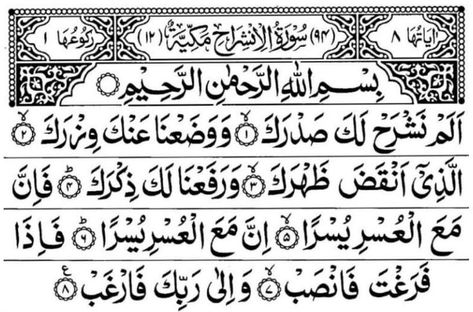 اٰيَاتُهَا ٨ (٩٤) سُوْرَةُ الْاِنْشِرَاحِ مَكِّيَّةٌ (١٢) رُكُوْعُهَا ١
بِسْمِ اللهِ الرَّحْمٰنِ الرَّحِيْمِ
اَلَمْ نَشْرَحْ لَكَ صَدْرَكَ ۙ﴿١﴾ وَوَضَعْنَا عَنْكَ وِزْرَكَ ۙ﴿٢﴾
الَّذِيْٓ اَنْقَضَ ظَهْرَكَ ۙ﴿٣﴾ وَرَفَعْنَا لَكَ ذِكْرَكَ ؕ﴿٤﴾ فَاِنَّ
مَعَ الْعُسْرِ يُسْرًا ۙ﴿٥﴾ اِنَّ مَعَ الْعُسْرِ يُسْرًا ؕ﴿٦﴾ فَاِذَا
فَرَغْتَ فَانْصَبْ ۙ﴿٧﴾ وَاِلٰى رَبِّكَ فَارْغَبْ ﴿٨﴾ ع